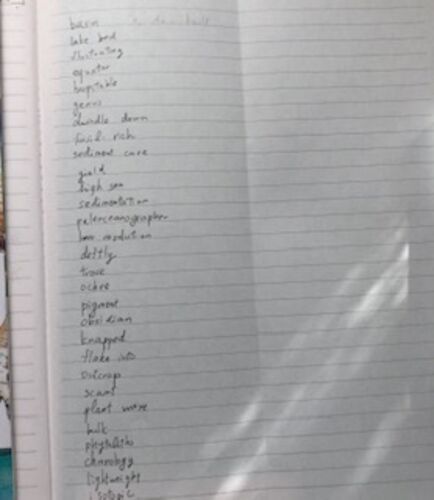 basin
lake bed
equator
hospitable
genus
dwindle down
fossil-rich
sediment core
high sea
sedimentation
paleoceanographer
low resolution
deftly
trove
ochre
pigment
obsidian
knapped
flake into
outcrop
scant
plant wax
bulk
phytoliths
chronology
lightweight
isotopic